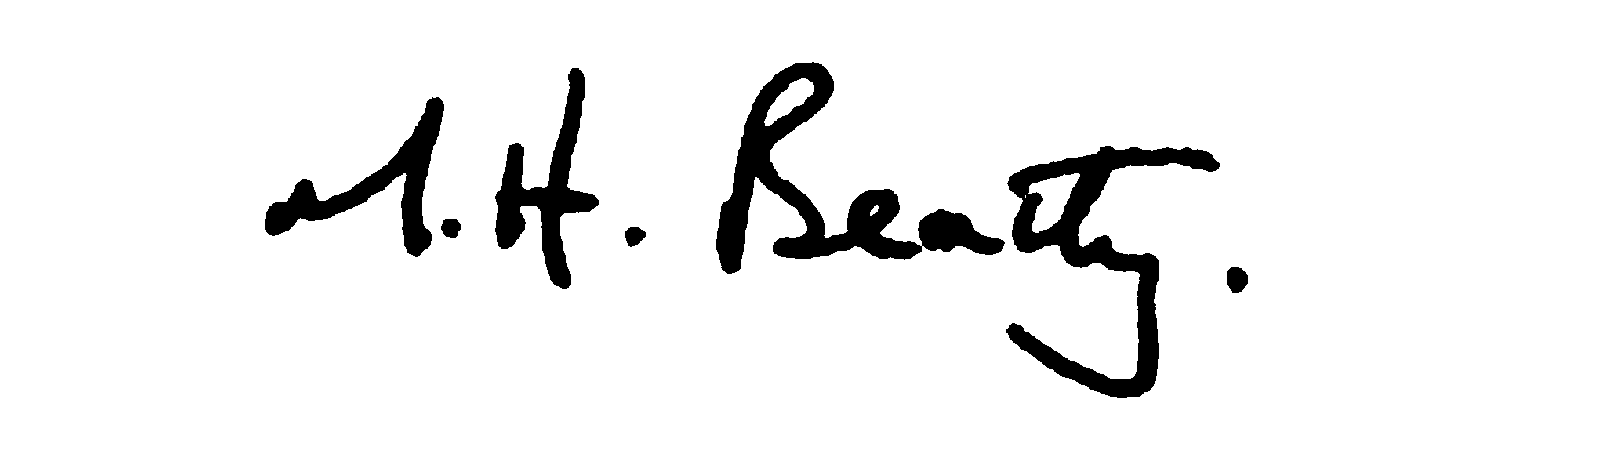 M. H. Beatty.